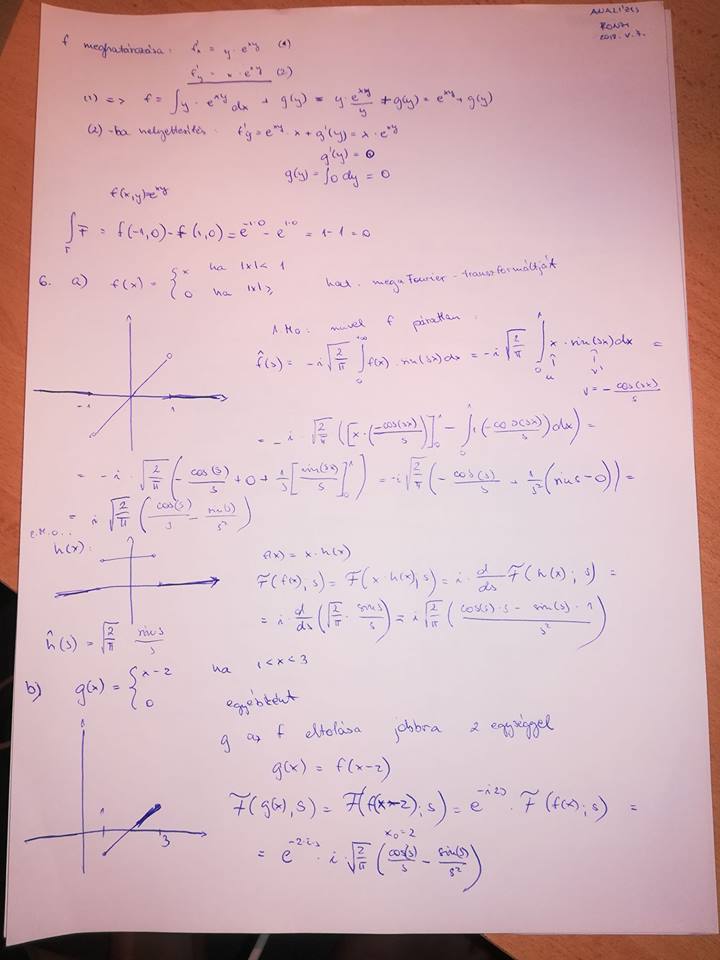 ANALÍZIS
KONZI
2018. V. 7.
f meghatározása: f'x = y · e^{xy} (1)
f'y = x · e^{xy} (2)
(1) => f = ∫ y · e^{xy} dx + g(y) = y · e^{xy}/y + g(y) = e^{xy} + g(y)
(2)-ba helyettesítés: f'y = e^{xy} · x + g'(y) = x · e^{xy}
g'(y) = 0
g(y) = ∫ 0 dy = 0
f(x,y) = e^{xy}
∫_Γ F = f(-1,0) - f(1,0) = e^{-1·0} - e^{1·0} = 1-1 = 0
6. a) f(x) = { x ha |x| < 1
0 ha |x| ≥
hat. meg a Fourier-transzformáltját
1. M.O.: mivel f páratlan:
f̂(s) = -i √(2/π) ∫_0^{+∞} f(x) · sin(sx) dx = -i √(2/π) ∫_0^1 x · sin(sx) dx =
u v'
v = - cos(sx)/s
-1 1
= -i · √(2/π) ([x · (-cos(sx)/s)]_0^1 - ∫_0^1 1 (-cos(sx)/s) dx) =
= -i · √(2/π) (-cos(s)/s + 0 + 1/s [sin(sx)/s]_0^1) = -i √(2/π) (-cos(s)/s + 1/s² (sin s - 0)) =
= i √(2/π) (cos(s)/s - sin(s)/s²)
2. M.O.:
h(x):
f(x) = x · h(x)
F(f(x), s) = F(x · h(x), s) = i · d/ds F(h(x); s) =
= i · d/ds (√(2/π) · sin s/s) = i √(2/π) (cos(s) · s - sin(s) · 1 / s²)
ĥ(s) = √(2/π) sin s/s
b) g(x) = { x-2 ha 1 < x < 3
0 egyébként
g az f eltolása jobbra 2 egységgel
g(x) = f(x-2)
1 3
F(g(x), s) = F(f(x-2); s) = e^{-i2s} · F(f(x); s) =
x₀=2
= e^{-2·i·s} · i · √(2/π) (cos(s)/s - sin(s)/s²)